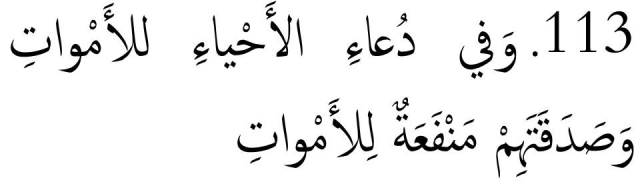 113. وَفي دُعاءِ الأَحْياءِ للأَمْواتِ
وَصَدَقَتَهِمْ مَنْفَعَةٌ لِلأَمْواتِ